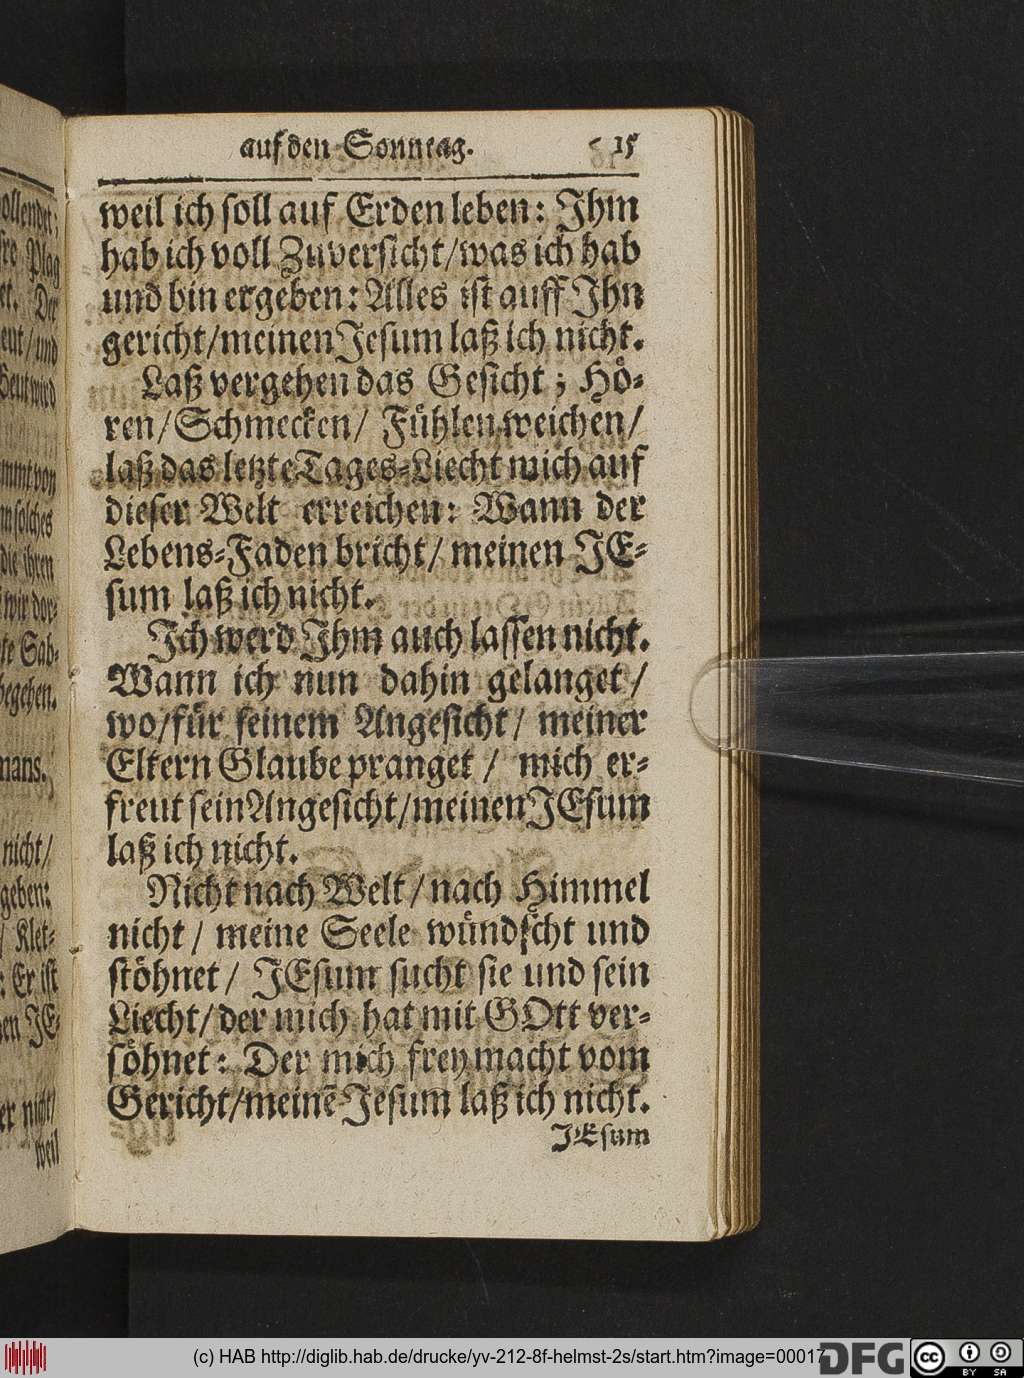 auf den Sonntag. 15
weil ich soll auf Erden leben: Ihm
hab ich voll Zuversicht/was ich hab
und bin ergeben: Alles ist auff Ihn
gericht/meinen Jesum laß ich nicht.
Laß vergehen das Gesicht; Hö-
ren/Schmecken/ Fühlen weichen/
laß das letzte Tages-Liecht mich auf
dieser Welt erreichen: Wann der
Lebens-Faden bricht/ meinen JE-
sum laß ich nicht.
Ich werd Ihm auch lassen nicht.
Wann ich nun dahin gelanget/
wo/für seinem Angesicht/ meiner
Eltern Glaube pranget / mich er-
freut sein Angesicht/meinen JEsum
laß ich nicht.
Nicht nach Welt/nach Himmel
nicht/ meine Seele wündscht und
stöhnet/ JEsum sucht sie und sein
Liecht/der mich hat mit GOtt ver-
söhnet: Der mich frey macht vom
Gericht/meinē Jesum laß ich nicht.
JEsum
ollendet;
Plag
et. Der
eut/und
wird
mmt von
solches
die ihren
wir dor-
te Sab-
begehen.
mans.
nicht/
geben:
/ Klet-
: Er ist
en JE-
er nicht/
weil
(c) HAB http://diglib.hab.de/drucke/yv-212-8f-helmst-2s/start.htm?image=00017
DFG
cc
BY SA